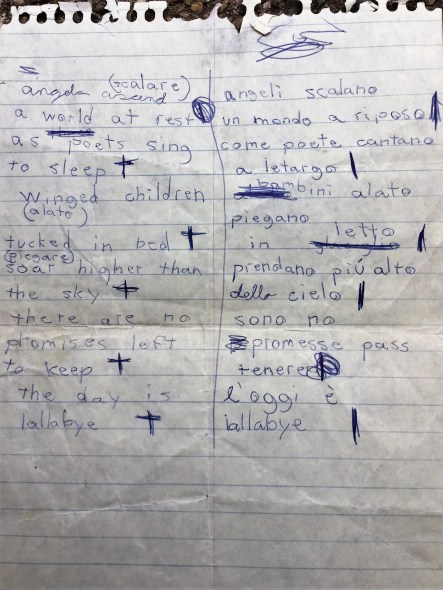 angels (scalare)
ascend
a world at rest
as poets sing
to sleep
winged children
(alato)
tucked in bed
(piegare)
soar higher than
the sky
there are no
promises left
to keep
the day is
lallabye
angeli scalano
un mondo a riposo
come poete cantano
a letargo
bambini alato
piegano
in letto
prendano più alto
dello cielo
sono no
promesse pass
tenere
l'oggi è
lallabye